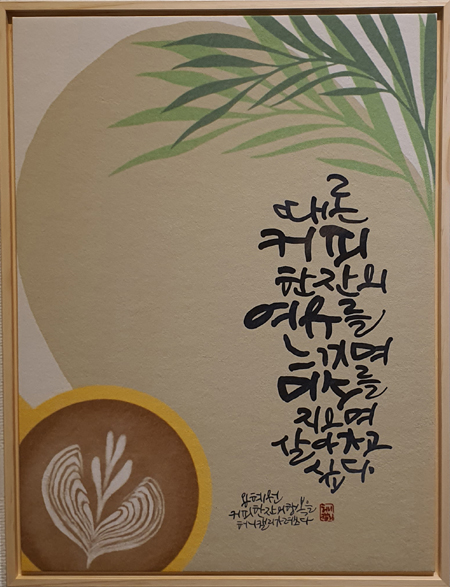 때론
커피
한잔의
여유를
느끼며
미소를
지으며
살아가고
싶다
용혜원
커피한잔의행복을